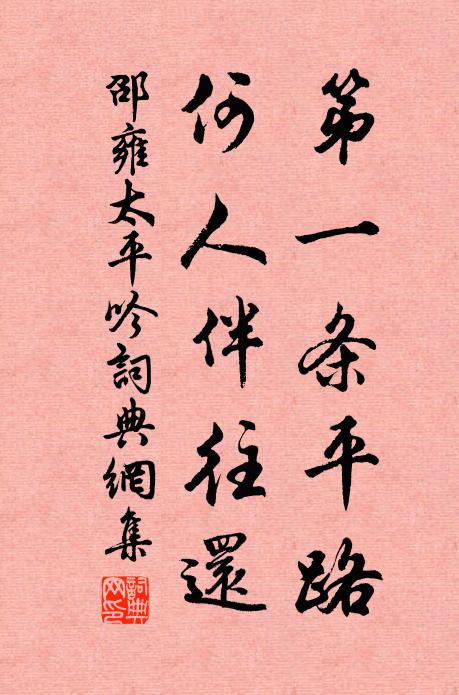 第一条平路
何人伴往還
邵雍太平吟詞典網集
詞典網印